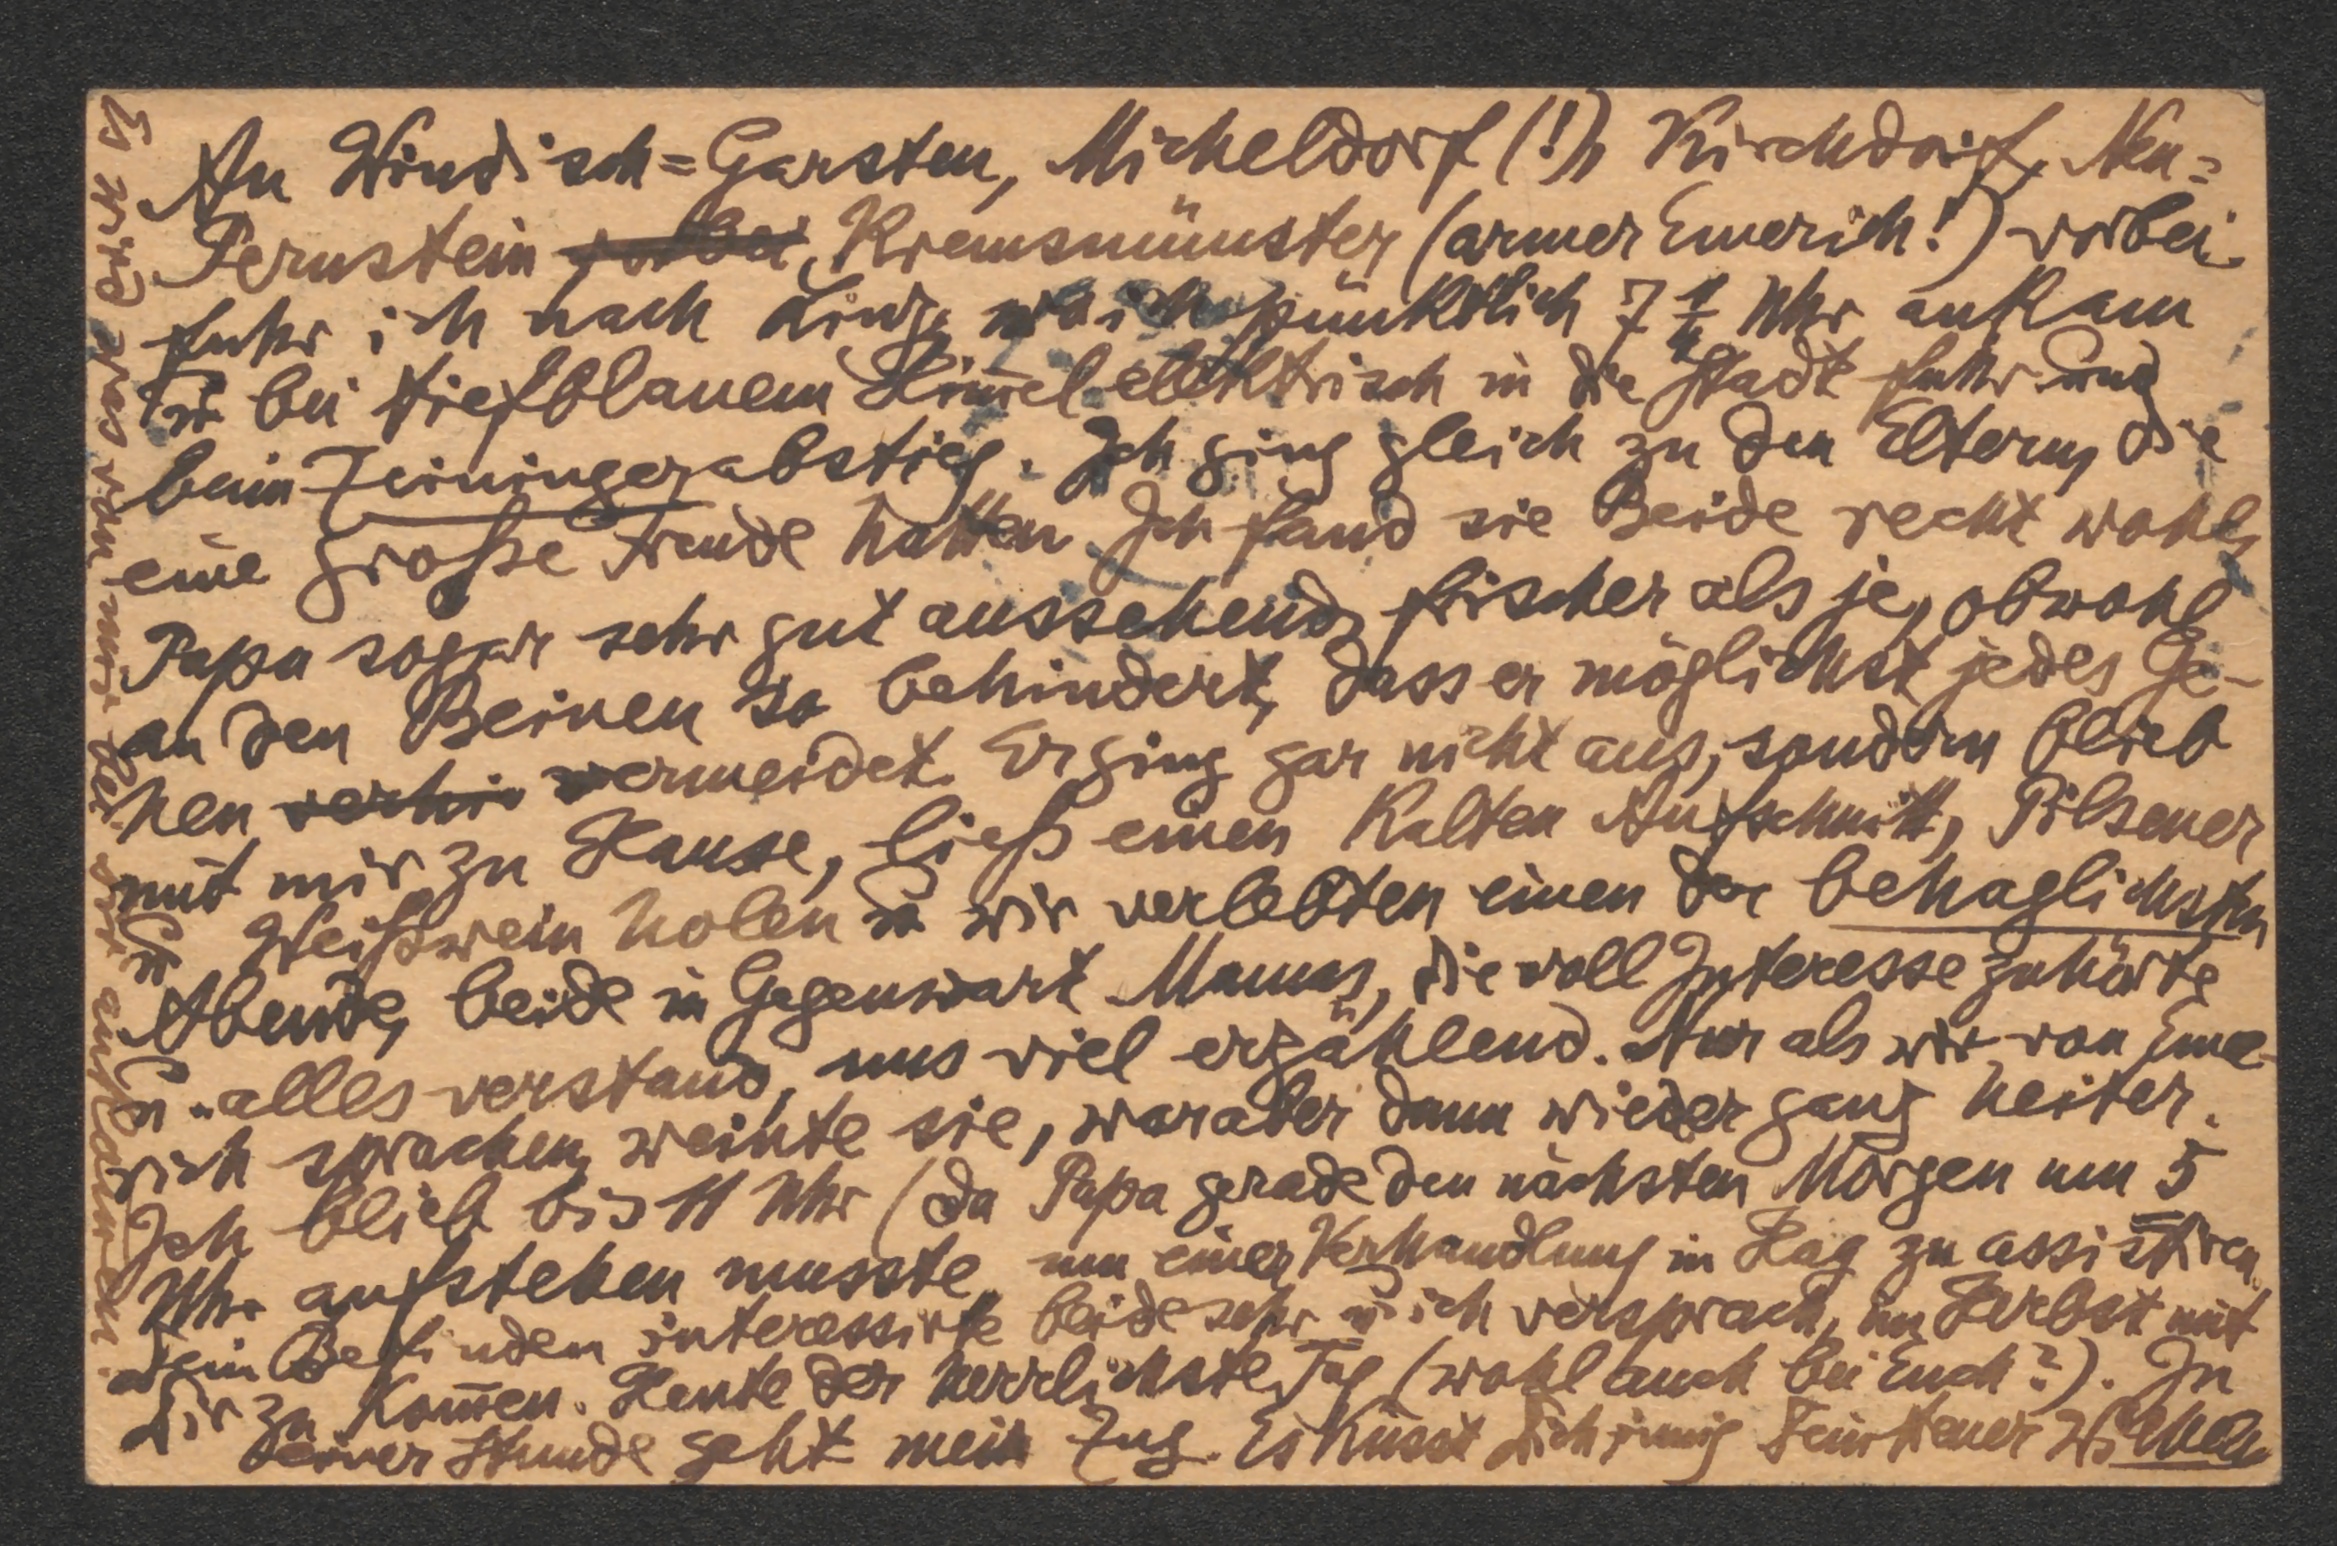 An Windisch=Garsten, Micheldorf (!), Kirchdorf, Neu=
Pernstein vorbei, Kremsmünster (armer Emerich!) vorbei
fuhr ich nach Linz, wo ich pünktlich 7 1/4 Uhr ankam
u. bei tiefblauem Him̅el elektrisch in die Stadt fuhr und
beim Zeininger abstieg. Ich ging gleich zu den Eltern, die
eine große Freude hatten. Ich fand sie Beide recht wohl,
Papa sogar sehr gut aussehend, frischer als je, obwohl
an den Beinen so behindert, dass er möglichst jedes Ge-
hen verhin vermeidet. Er ging gar nicht aus, sondern blieb
mit mir zu Hause, ließ einen kalten Aufschnitt, Pilsener
u. Weißwein holen u. wir verlebten einen der behaglichsten
Abende, beide in Gegenwart Mamas, die voll Interesse zuhörte
u. alles verstand, uns viel erzählend. Nur als wir von Eme-
rich sprachen, weinte sie, war aber dann wieder ganz heiter.
Ich blieb bis 11 Uhr (da Papa gerade den nächsten Morgen um 5
Uhr aufstehen musste, um einer Verhandlung in Hag zu assistiren.
Dein Befinden interessirte beide sehr u. ich versprach, im Herbst mit
Dir zu kom̅en. Heute der herrlichste Tag (wohl auch bei Euch?). In
einer Stunde geht mein Zug. Es küsst Dich innig Dein treuer
Es wird was von mir bei Dir ankommen.